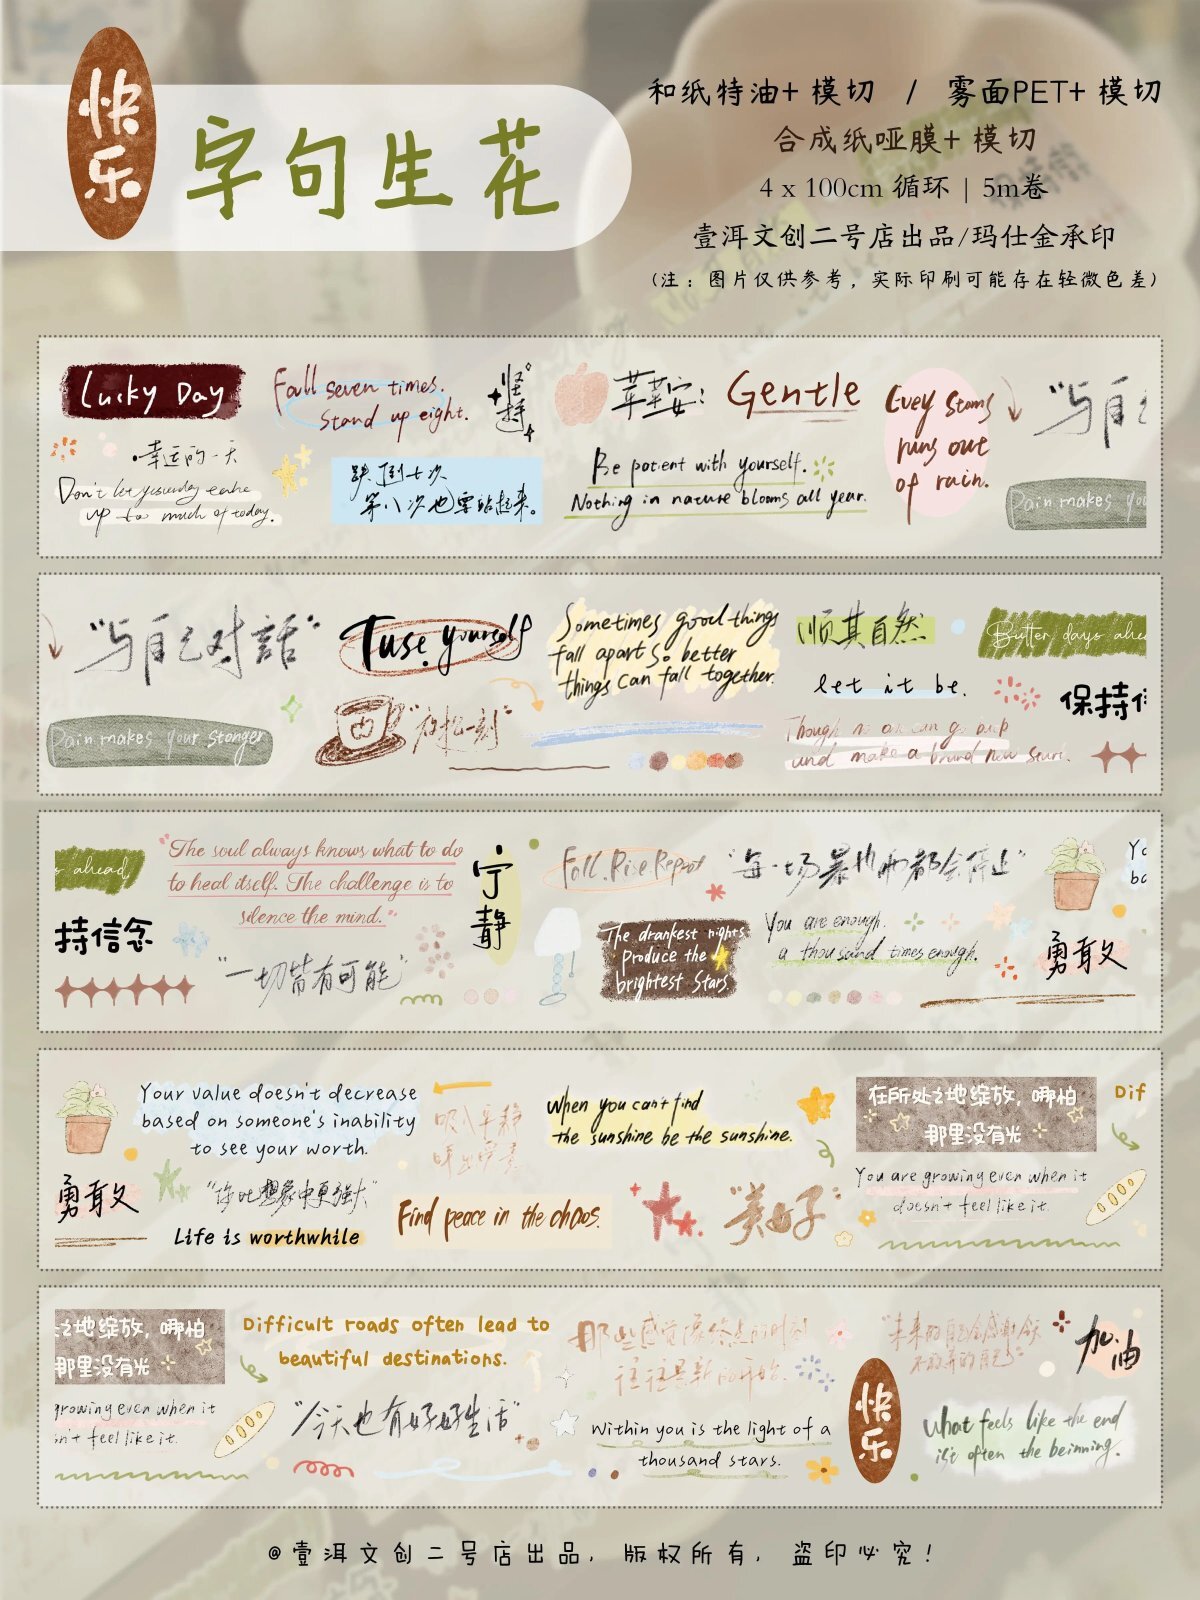 快乐
字句生花
和纸特油+ 模切 / 雾面PET+ 模切
合成纸哑膜+ 模切
4 x 100cm 循环 | 5m卷
壹洱文创二号店出品/玛仕金承印
(注：图片仅供参考，实际印刷可能存在轻微色差)
Lucky Day
·幸运的一天
Don't let yesterday take
up too much of today.
Fall seven times.
Stand up eight.
坚持
跌倒七次
第八次也要站起来。
苹苹安:
Gentle
Be patient with yourself.
Nothing in nature blooms all year.
Evey Stoms
runs out
of rain.
"与自己
Pain makes you
"与自己对话"
Pain makes your stonger
Tuse yourself
"放松一刻"
Sometimes good things
fall apart So better
things can fall together.
顺其自然
let it be.
Though no one can go
and make a brand new
Butter days ahe
保持信
s ahead
持信念
"The soul always knows what to do
to heal itself. The challenge is to
silence the mind."
"一切皆有可能"
宁静
Fall.Rise.Repeat
"每一场暴风雨都会停止"
The drankest nights
produce the
brightest Stars
You are enough.
a thousand times enough.
勇敢
Yo
ba
Your value doesn't decrease
based on someone's inability
to see your worth.
勇敢
"你比想象中更强大"
Life is worthwhile
吸入平静
呼出
Find peace in the chaos.
When you can't find
the sunshine be the sunshine.
"美好"
在所处之地绽放，哪怕
那里没有光
You are growing even when it
doesn't feel like it.
Dif
之地绽放，哪怕
那里没有光
growing even when it
sn't feel like it.
Difficult roads often lead to
beautiful destinations.
"今天也有好好生活"
那些感觉像终点的时刻
往往是新的开始。
Within you is the light of a
thousand stars.
"未来的自己会感谢你
不放弃的自己"
快乐
加油
What feels like the end
ist often the beinning.
@壹洱文创二号店出品，版权所有，盗印必究！